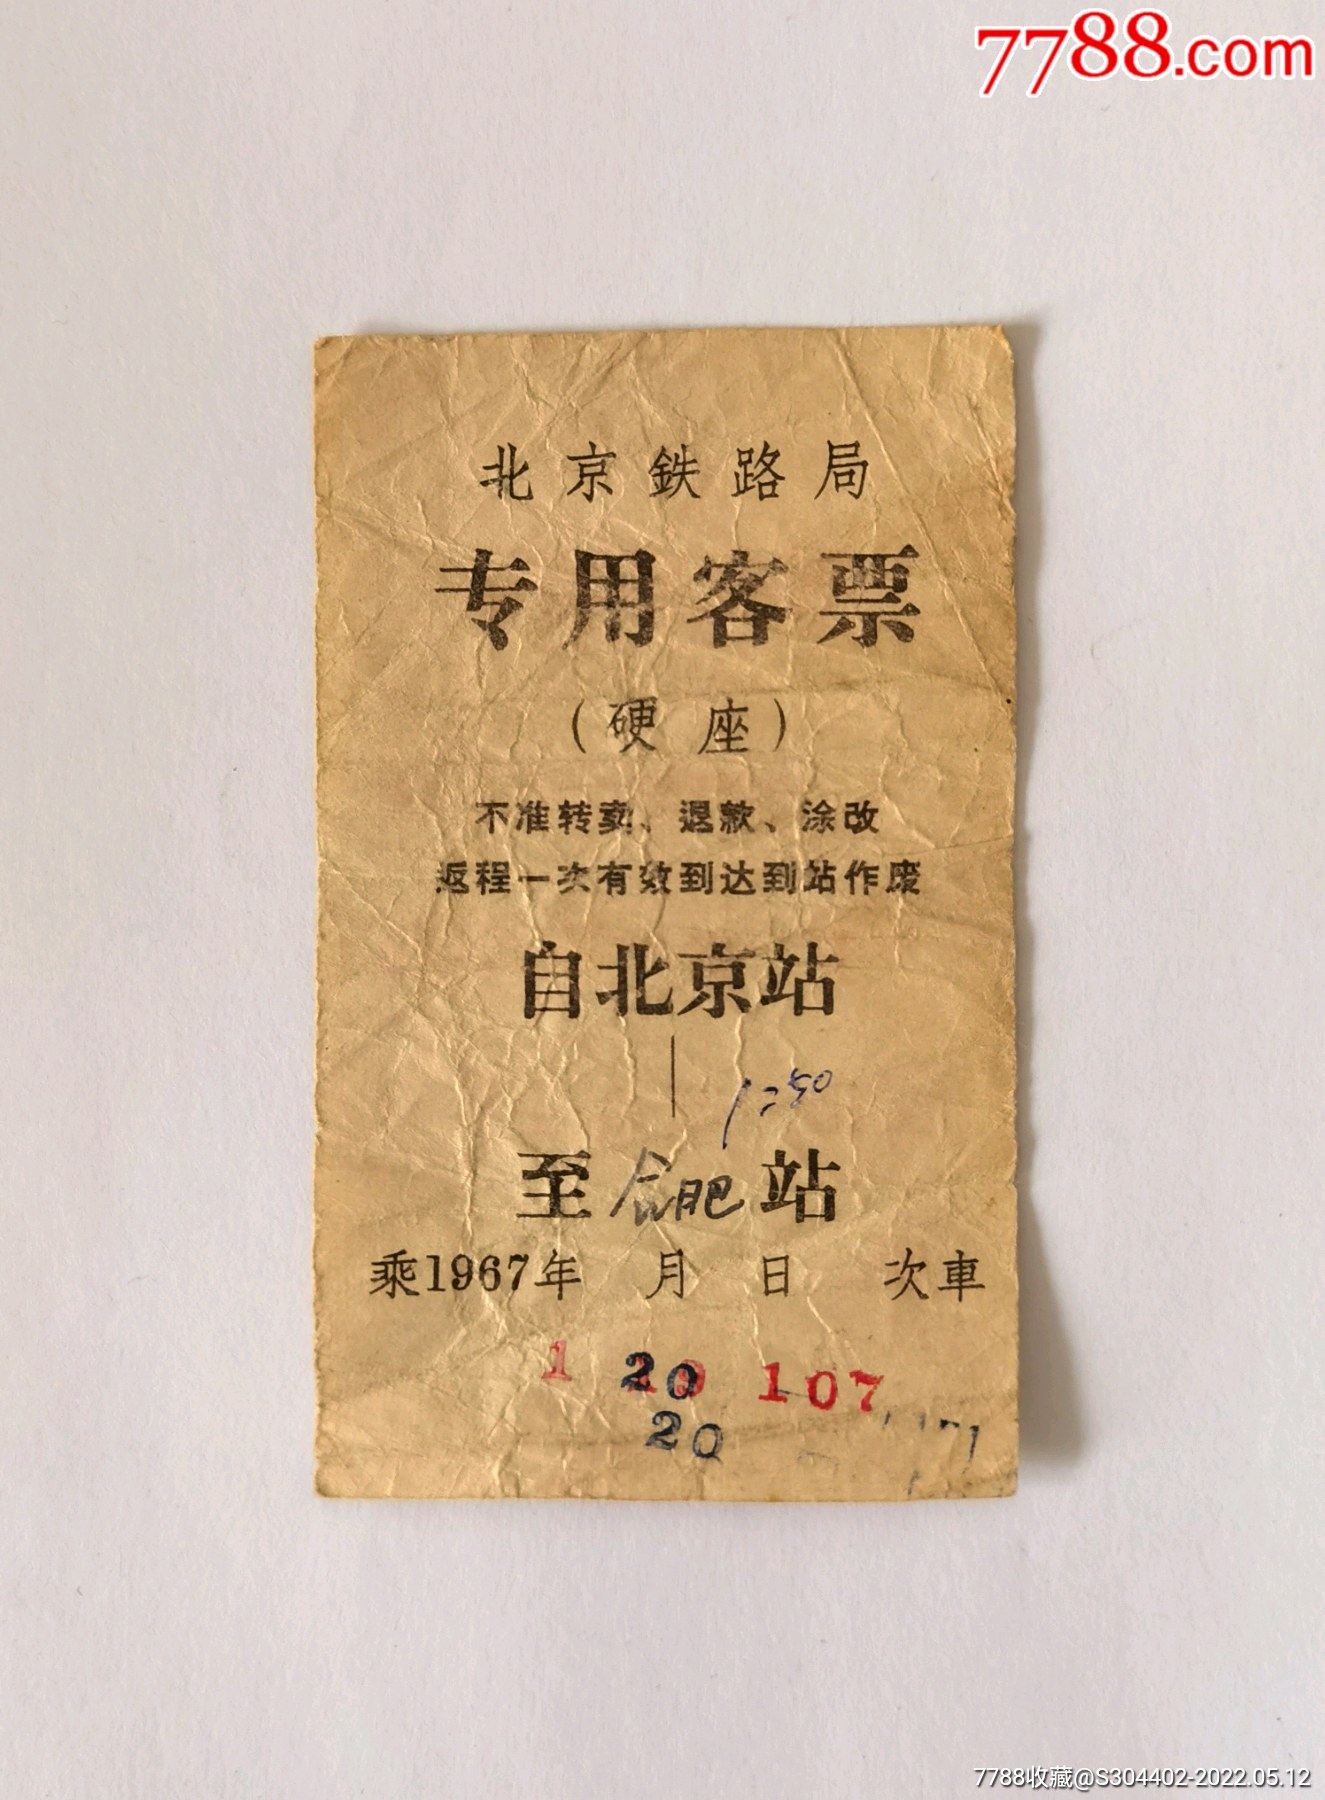 7788.com
北京鉄路局
专用客票
（硬座）
不准转卖、退款、涂改
返程一次有效到达到站作废
自北京站
至合肥站
乘1967年 月 日 次車
1 20 107
20
7788收藏@S304402-2022.05.12